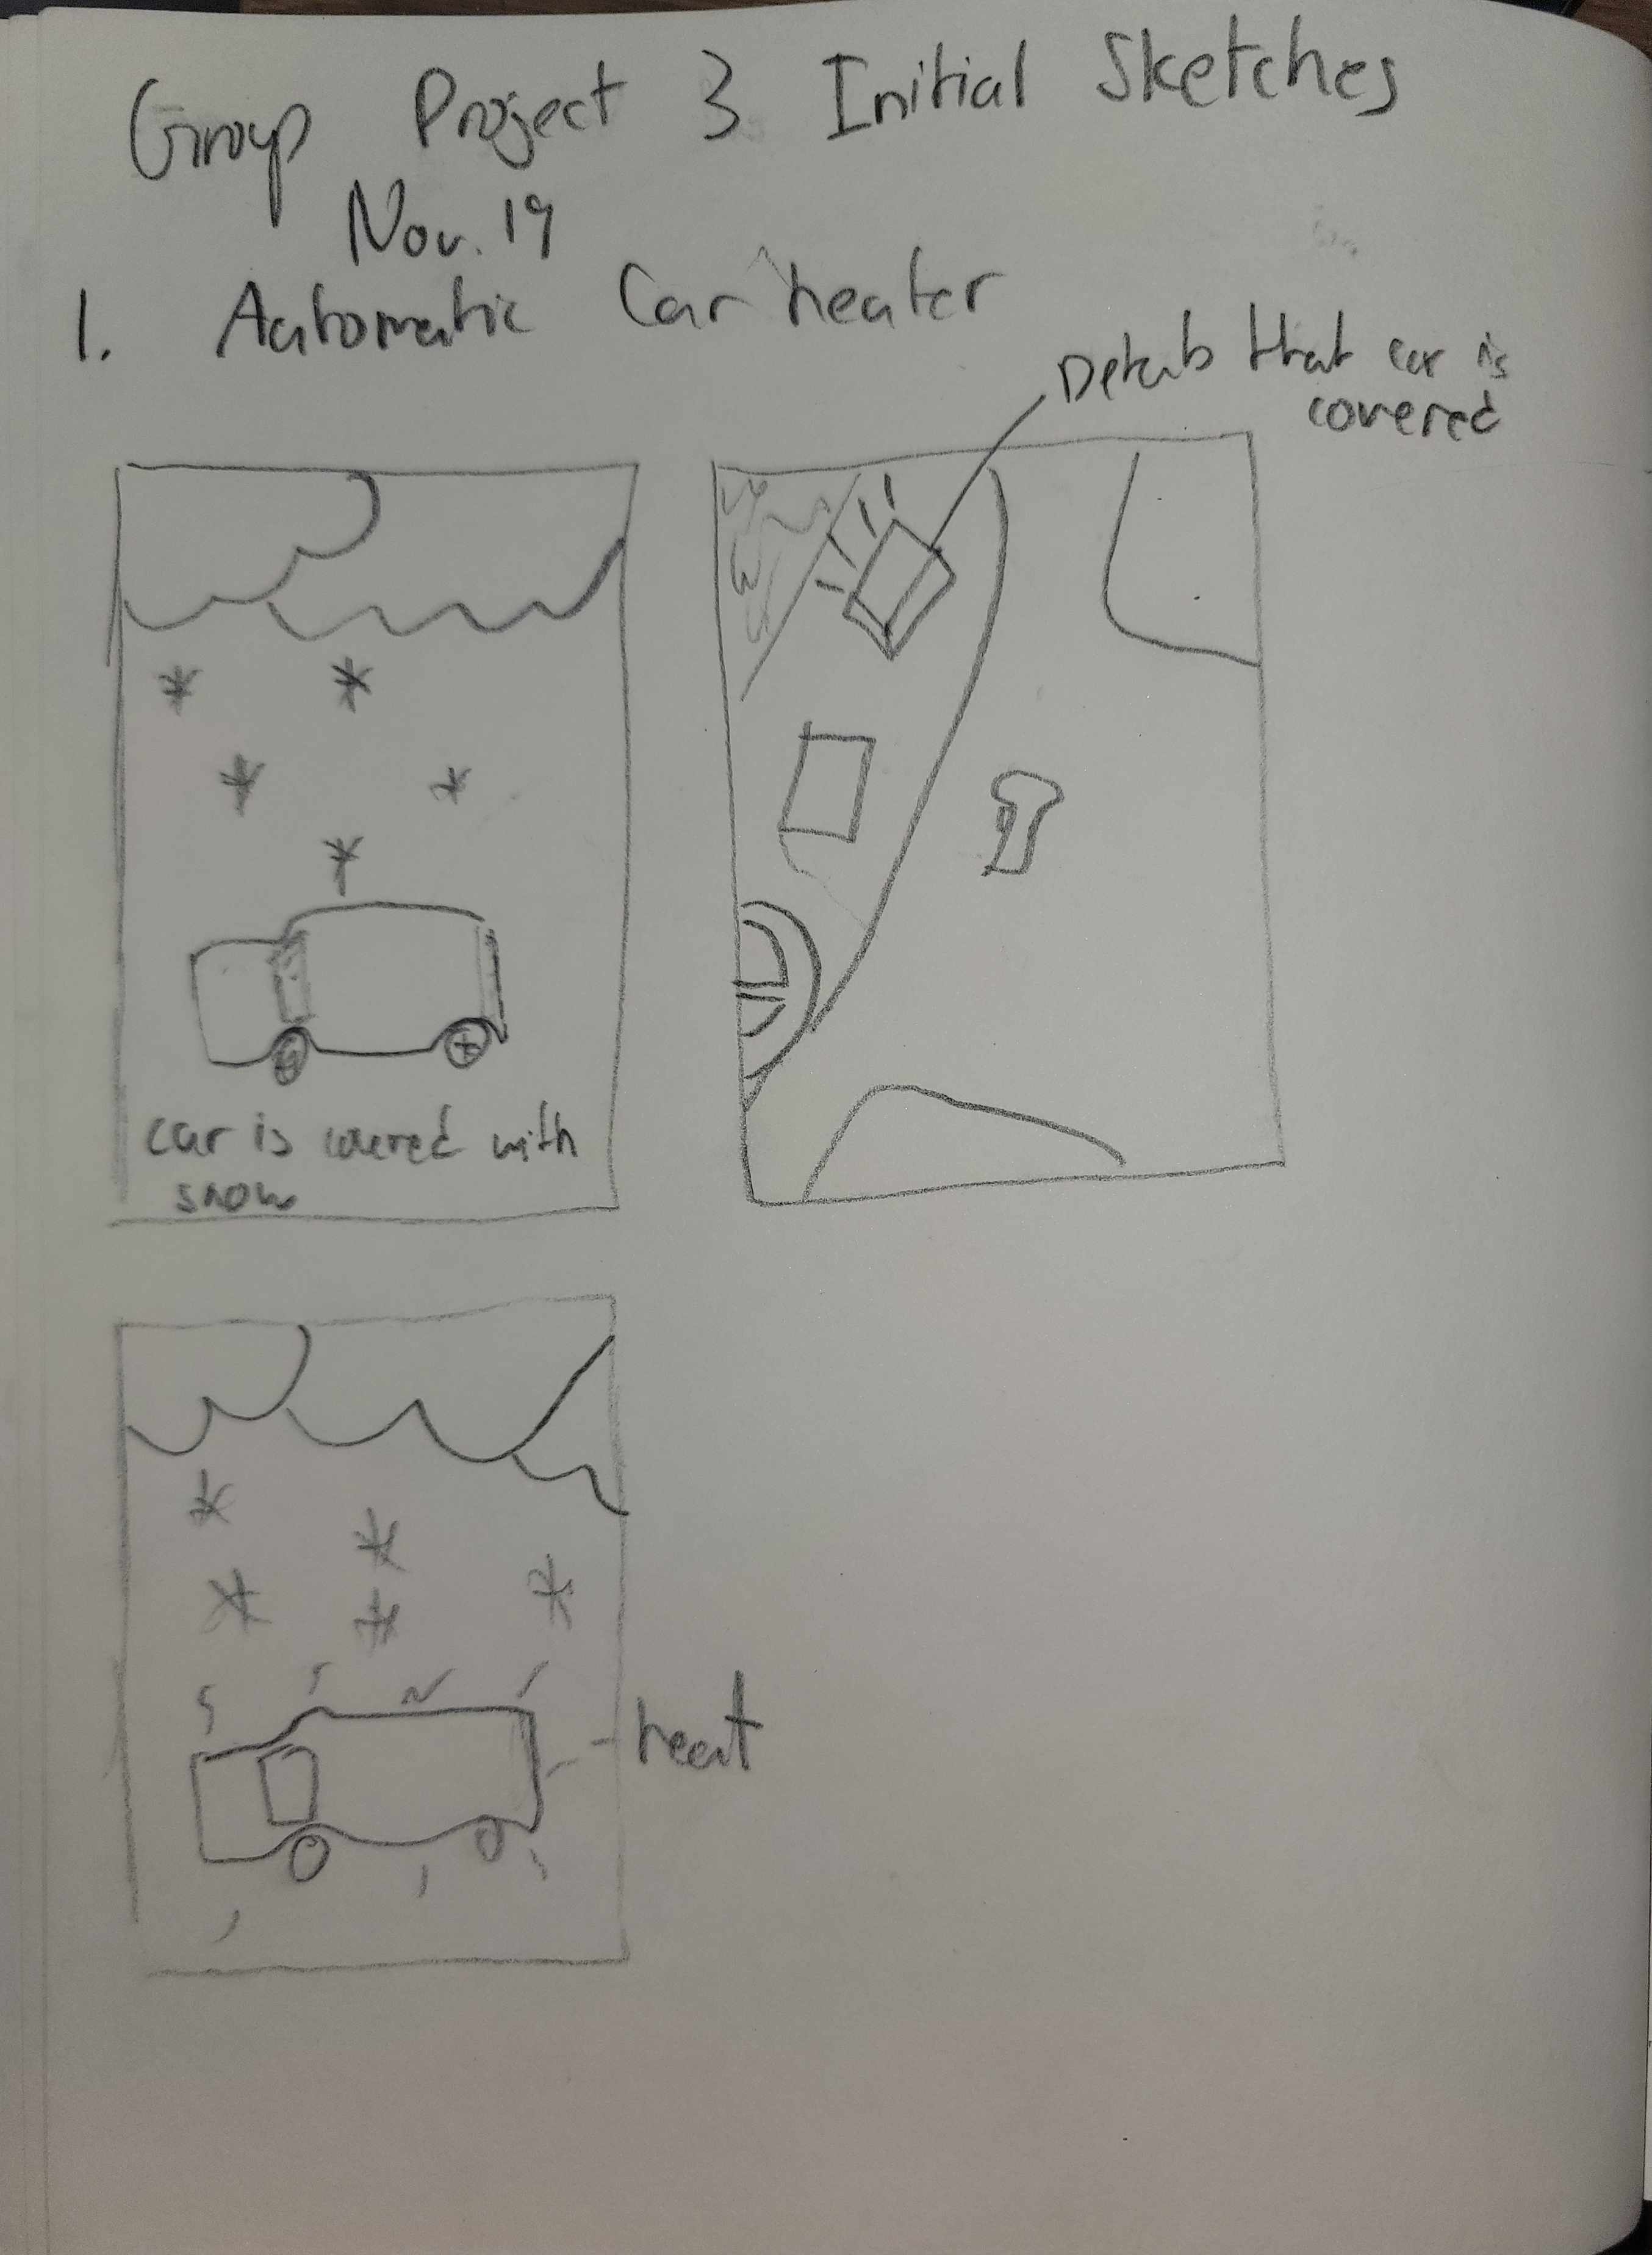 Group Project 3 Initial Sketches
Nov. 19
1. Automatic Car heater
Detects that car is
covered
car is covered with
snow
heat